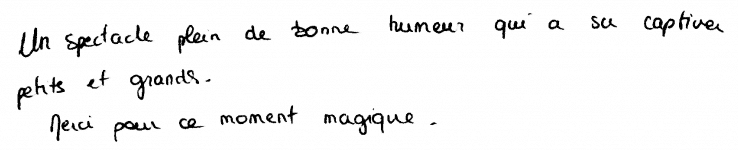 Un spectacle plein de bonne humeur qui a su captiver
petits et grands.
Merci pour ce moment magique.